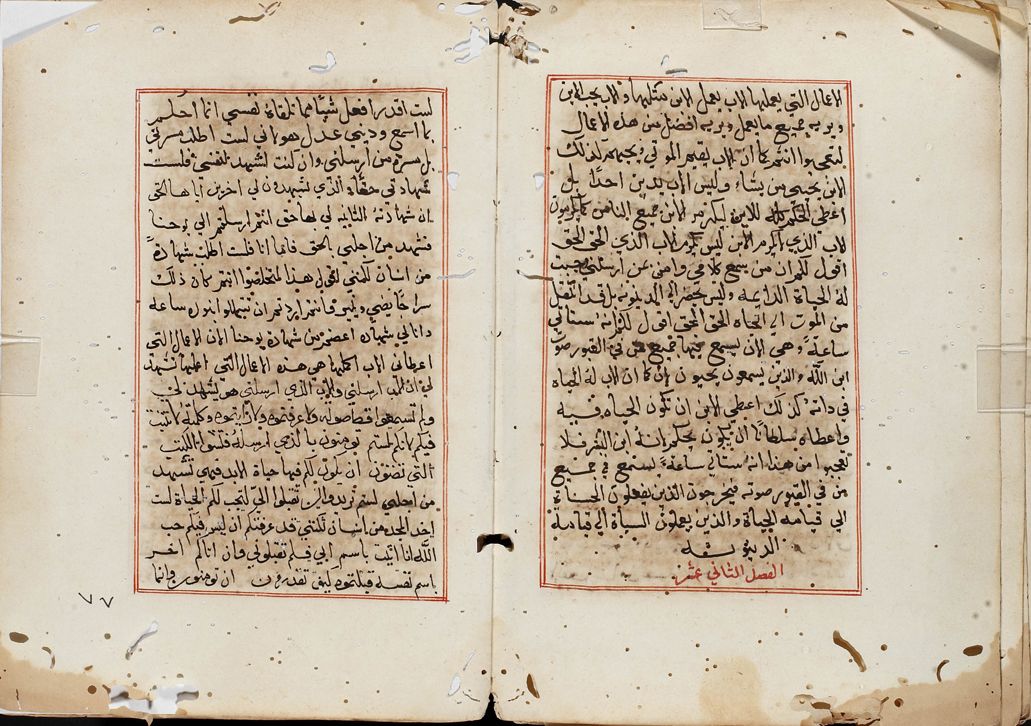 الاعمال التي يعملها الاب يعمل الابن مثلها والاب يحب الابن
ويريه جميع ما يعمل ويريه افضل من هذه الاعمال
لتعجبوا انتم كما ان الاب يقيم الموتي ويحييهم كذلك
الابن يحيي من يشاء وليس الاب يدين احدا بل
اعطي الحكم كله للابن ليكرم الابن جميع الناس كما يكرمون
الاب الذي لا يكرم الابن ليس يكرم الاب الذي الحق الحق
اقول لكم ان من سمع كلامي وامن بمن ارسلني وجبت
له الحياة الدايمه وليس يحضر الي الدينونه بل قد انتقل
من الموت الي الحياه الحق الحق اقول لكم انه ستاتي
ساعة وهي الان يسمع فيها جميع من في القبور صوت
ابن الله والذين يسمعون يحيون لان كما ان الاب له الحياه
في ذاته كذلك اعطي الابن ان تكون الحياه فيه
واعطاه سلطانا ان يكون يحكم لانه ابن البشر فلا
تعجبوا من هذا انه ستاتي ساعة يستمع في جميع
من في القبور صوته فيخرجون الذين يفعلون الحسنات
الي قيامة الحياة والذين يعملون السيأة الي قيامة
الدينونه
الفصل الثاني عشر
لست اقدر افعل شيا من تلقاة نفسي انما احكم
بما اسمع وديني عدل هو لاني لست اطلب مسرتي
بل مسرة من ارسلني وان كنت اشهد لنفسي فليست
شهادتي حقاة الذي تشهدون لي اخر بن ايا هالحي
ان شهادته الثانيه لي بها حق انتم ارسلتم الي يوحنا
فشهد من اجلي بالحق فاما انا فلست اطلب شهادة
من انسان لكنني اقول هذا لتخلصوا انتم كان ذلك
سراجا يضي وينير فانتم اردتم ان تتهللوا بنوره ساعه
وانا لي شهاده اعضم من شهادة يوحنا لان الاعمال التي
اعطاني الاب اكملها هي هذه الاعمال التي اعملها تشهد
لي ان الاب ارسلني والاب الذي ارسلني هو يشهد لي
ولم تسمعوا قط صوته ولا عرفتموه ولا رايتموه وكلمته لا تثبت
فيكم لانكم لستم تومنون بالذي ارسله فتشوا الكتب
التي تضنون ان تكون لكم فيها حياة الابد فهي تشهد
من اجلي لستم تريدو ان تقبلوا الي لتجب لكم الحياة لست
اخد المجد من انسان لكنني قد عرفتكم ان ليس فيكم حب
الله انا اتيت باسم ابي فلم تقبلوني وان اتاكم اخر
باسم نفسه قبلتموه كيف تقدرون ان تومنون وانما
٧٧